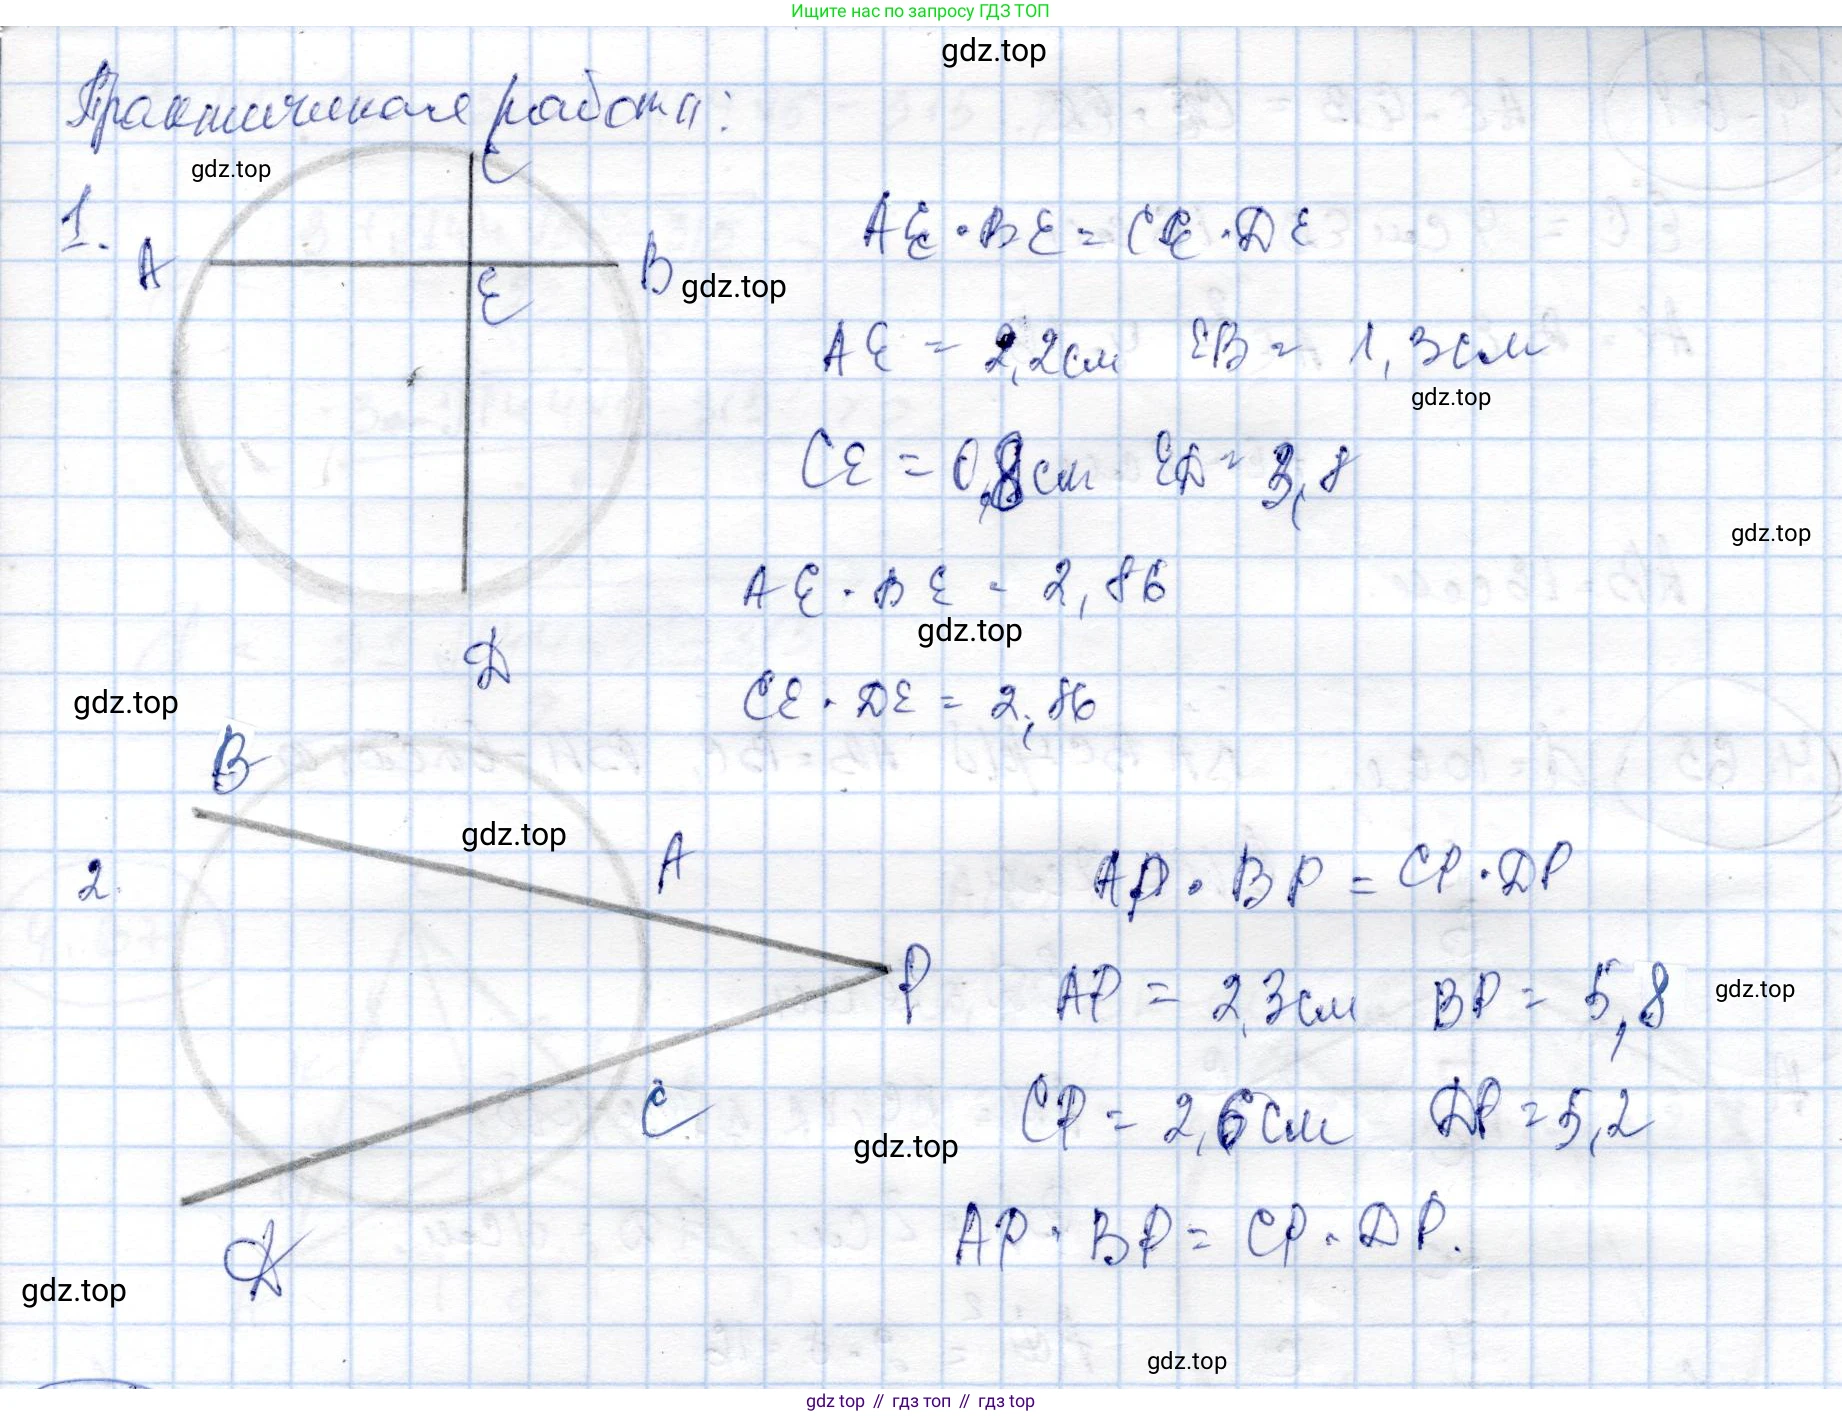 Ищите нас по запросу ГДЗ ТОП
gdz.top
Практическая работа:
gdz.top
C
1.
A
B
E
gdz.top
AE · BE = CE · DE
AE = 2,2см EB = 1,3см
gdz.top
CE = 0,8см ED = 3,8
gdz.top
AE · BE = 2,86
gdz.top
D
CE · DE = 2,86
gdz.top
B
gdz.top
2.
A
AP · BP = CP · DP
P
AP = 2,3см BP = 5,8
gdz.top
C
CP = 2,6см DP = 5,2
gdz.top
D
AP · BP = CP · DP.
gdz.top
gdz.top
gdz top // гдз топ // gdz top